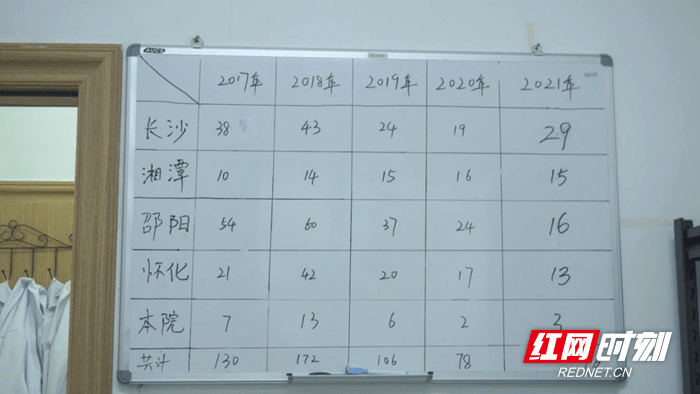 AUCS
2017年 2018年 2019年 2020年 2021年
长沙 38 43 24 19 29
湘潭 10 14 15 16 15
邵阳 54 60 37 24 16
怀化 21 42 20 17 13
本院 7 13 6 2 3
共计 130 172 106 78
红网时刻
REDNET.CN